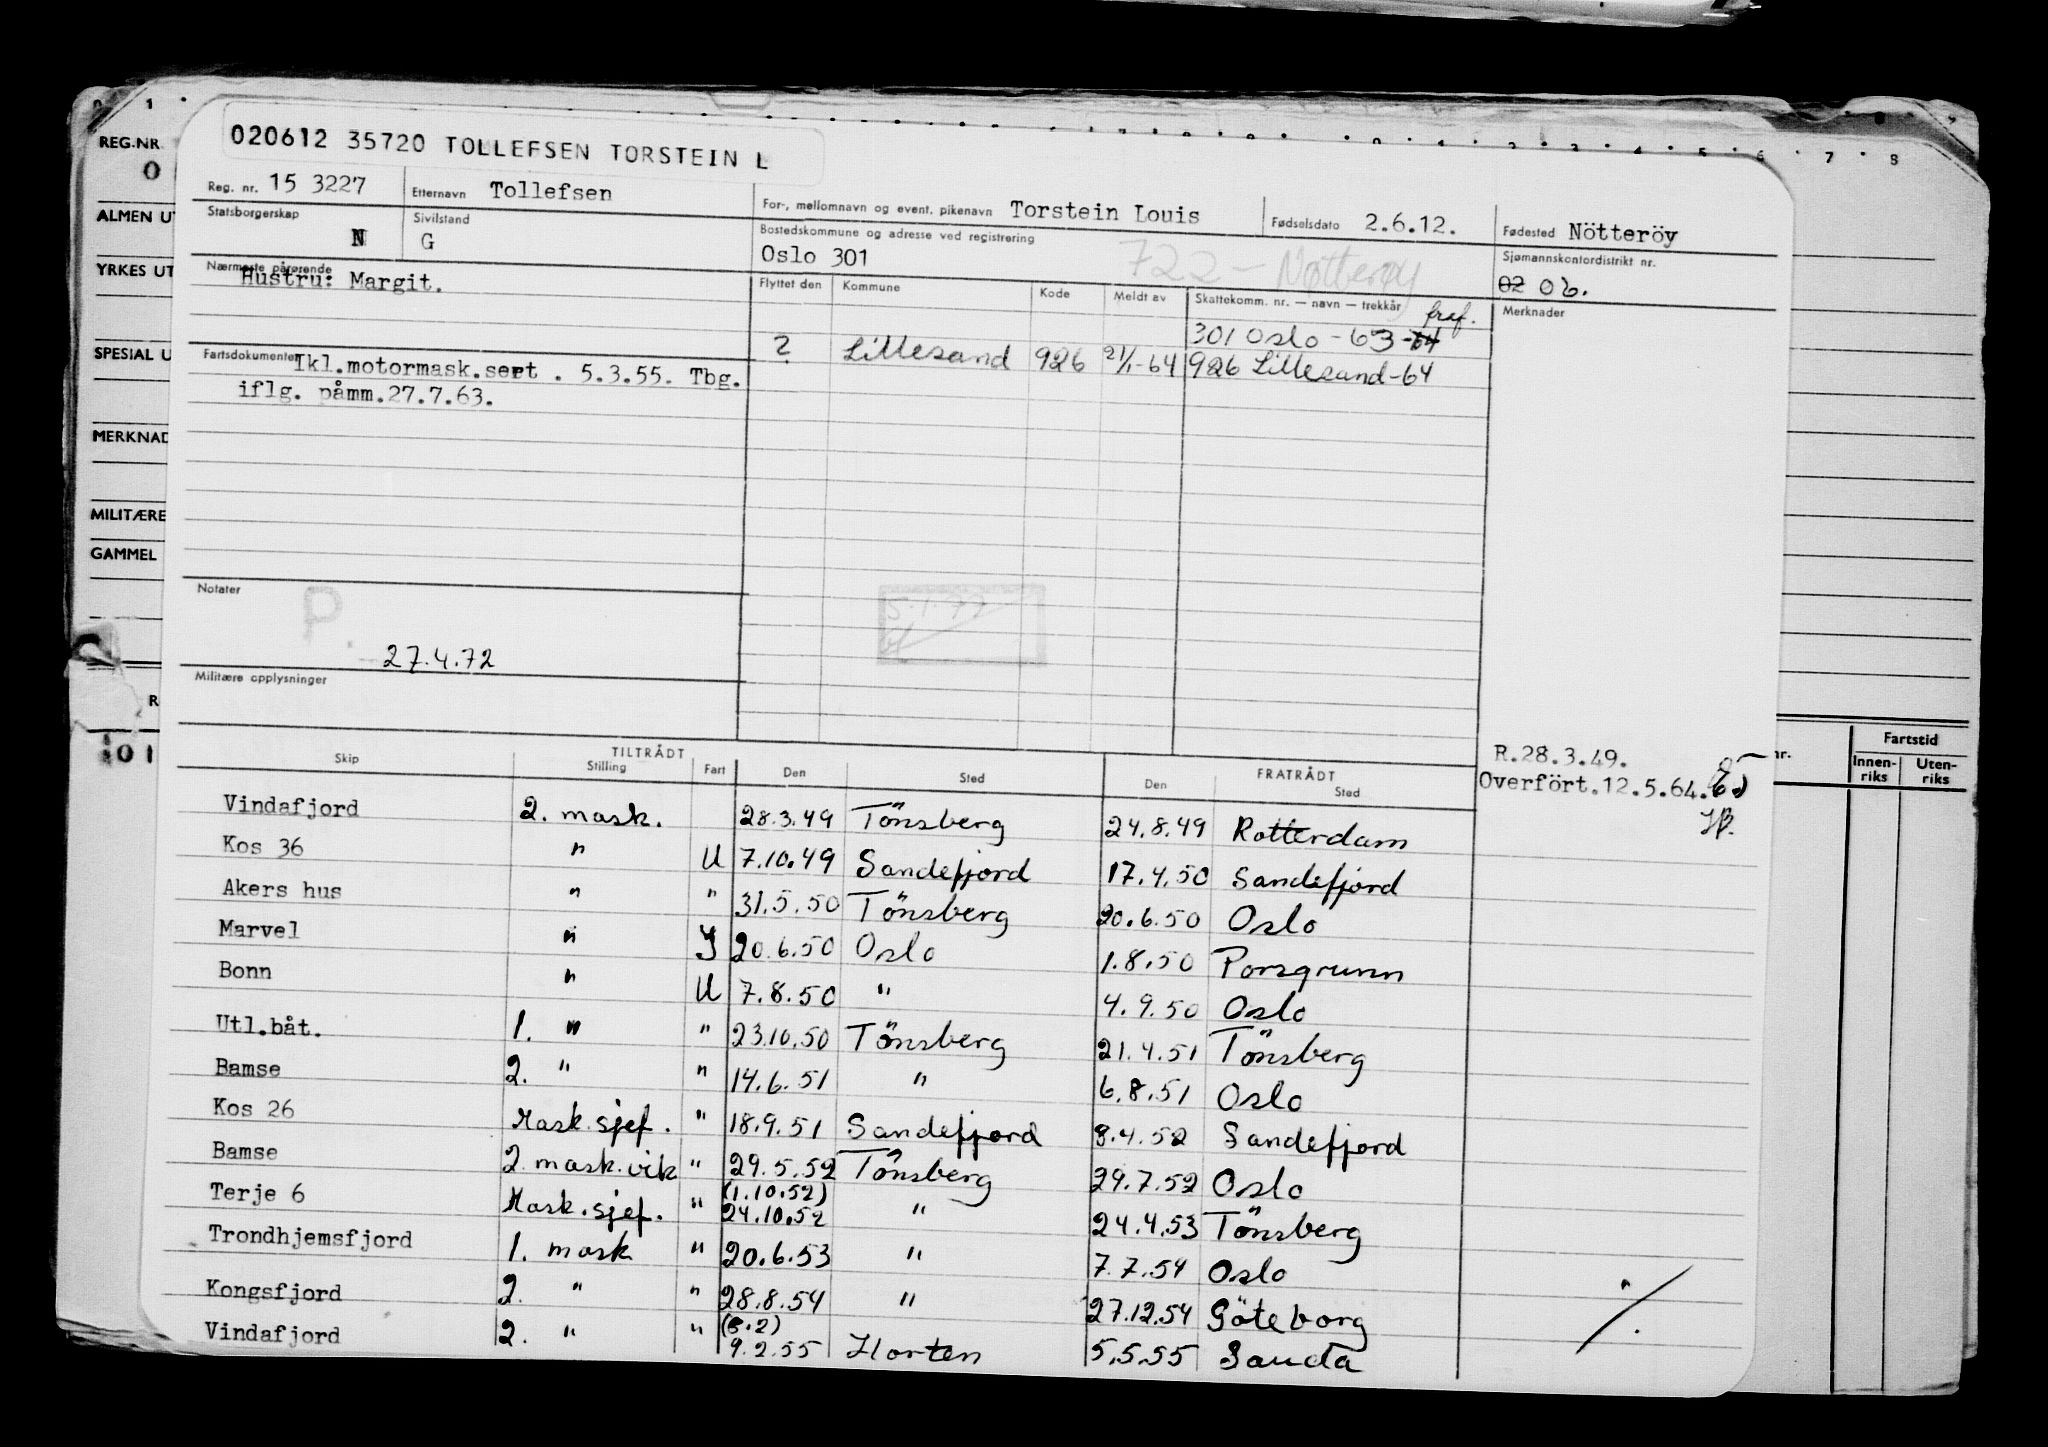 020612 35720 TOLLEFSEN TORSTEIN L
REG.NR
0
Reg. nr. 15 3227 Etternavn Tollefsen For-, mellomnavn og event. pikenavn Torstein Louis Fødselsdato 2.6.12. Fødested Nötteröy
ALMEN UT
Statsborgerskap N Sivilstand G Bostedskommune og adresse ved registrering Oslo 301 722 - Nøtterøy Sjømannskontordistrikt nr. 02 06.
YRKES UT
Nærmeste pårørende Hustru: Margit.
Flyttet den Kommune Kode Meldt av Skattekomm. nr. — navn — trekkår Merknader
fraf.
301 Oslo - 63-64
? Lillesand 926 21/1-64 926 Lillesand-64
SPESIAL U
Fartsdokumenter Ikl.motormask.sert . 5.3.55. Tbg.
iflg. påmm.27.7.63.
MERKNAD
MILITÆRE
GAMMEL
Notater
P.
5.1.77
27.4.72
Militære opplysninger
R
01
R.28.3.49.
Overfört.12.5.64.
nr. Fartstid
Innen-riks Uten-riks
Skip TILTRÅDT Stilling Fart Den Sted FRATRÅDT Den Sted
Vindafjord 2. mask. 28.3.49 Tönsberg 24.8.49 Rotterdam
Kos 36 " U 7.10.49 Sandefjord 17.4.50 Sandefjord
Akers hus " " 31.5.50 Tönsberg 20.6.50 Oslo
Marvel " I 20.6.50 Oslo 1.8.50 Porsgrunn
Bonn " U 7.8.50 " 4.9.50 Oslo
Utl.båt. 1. " " 23.10.50 Tönsberg 21.4.51 Tönsberg
Bamse 2. " " 14.6.51 " 6.8.51 Oslo
Kos 26 Mask.sjef. " 18.9.51 Sandefjord 8.4.52 Sandefjord
Bamse 2. mask.vik " 29.5.52 Tönsberg 29.7.52 Oslo
Terje 6 Mask.sjef. " (1.10.52) 24.10.52 " 24.4.53 Tönsberg
Trondhjemsfjord 1. mask " 20.6.53 " 7.7.54 Oslo
Kongsfjord 2. " " 28.8.54 " 27.12.54 Göteborg
Vindafjord 2. " " (8.2) 9.2.55 Horten 5.5.55 Sauda